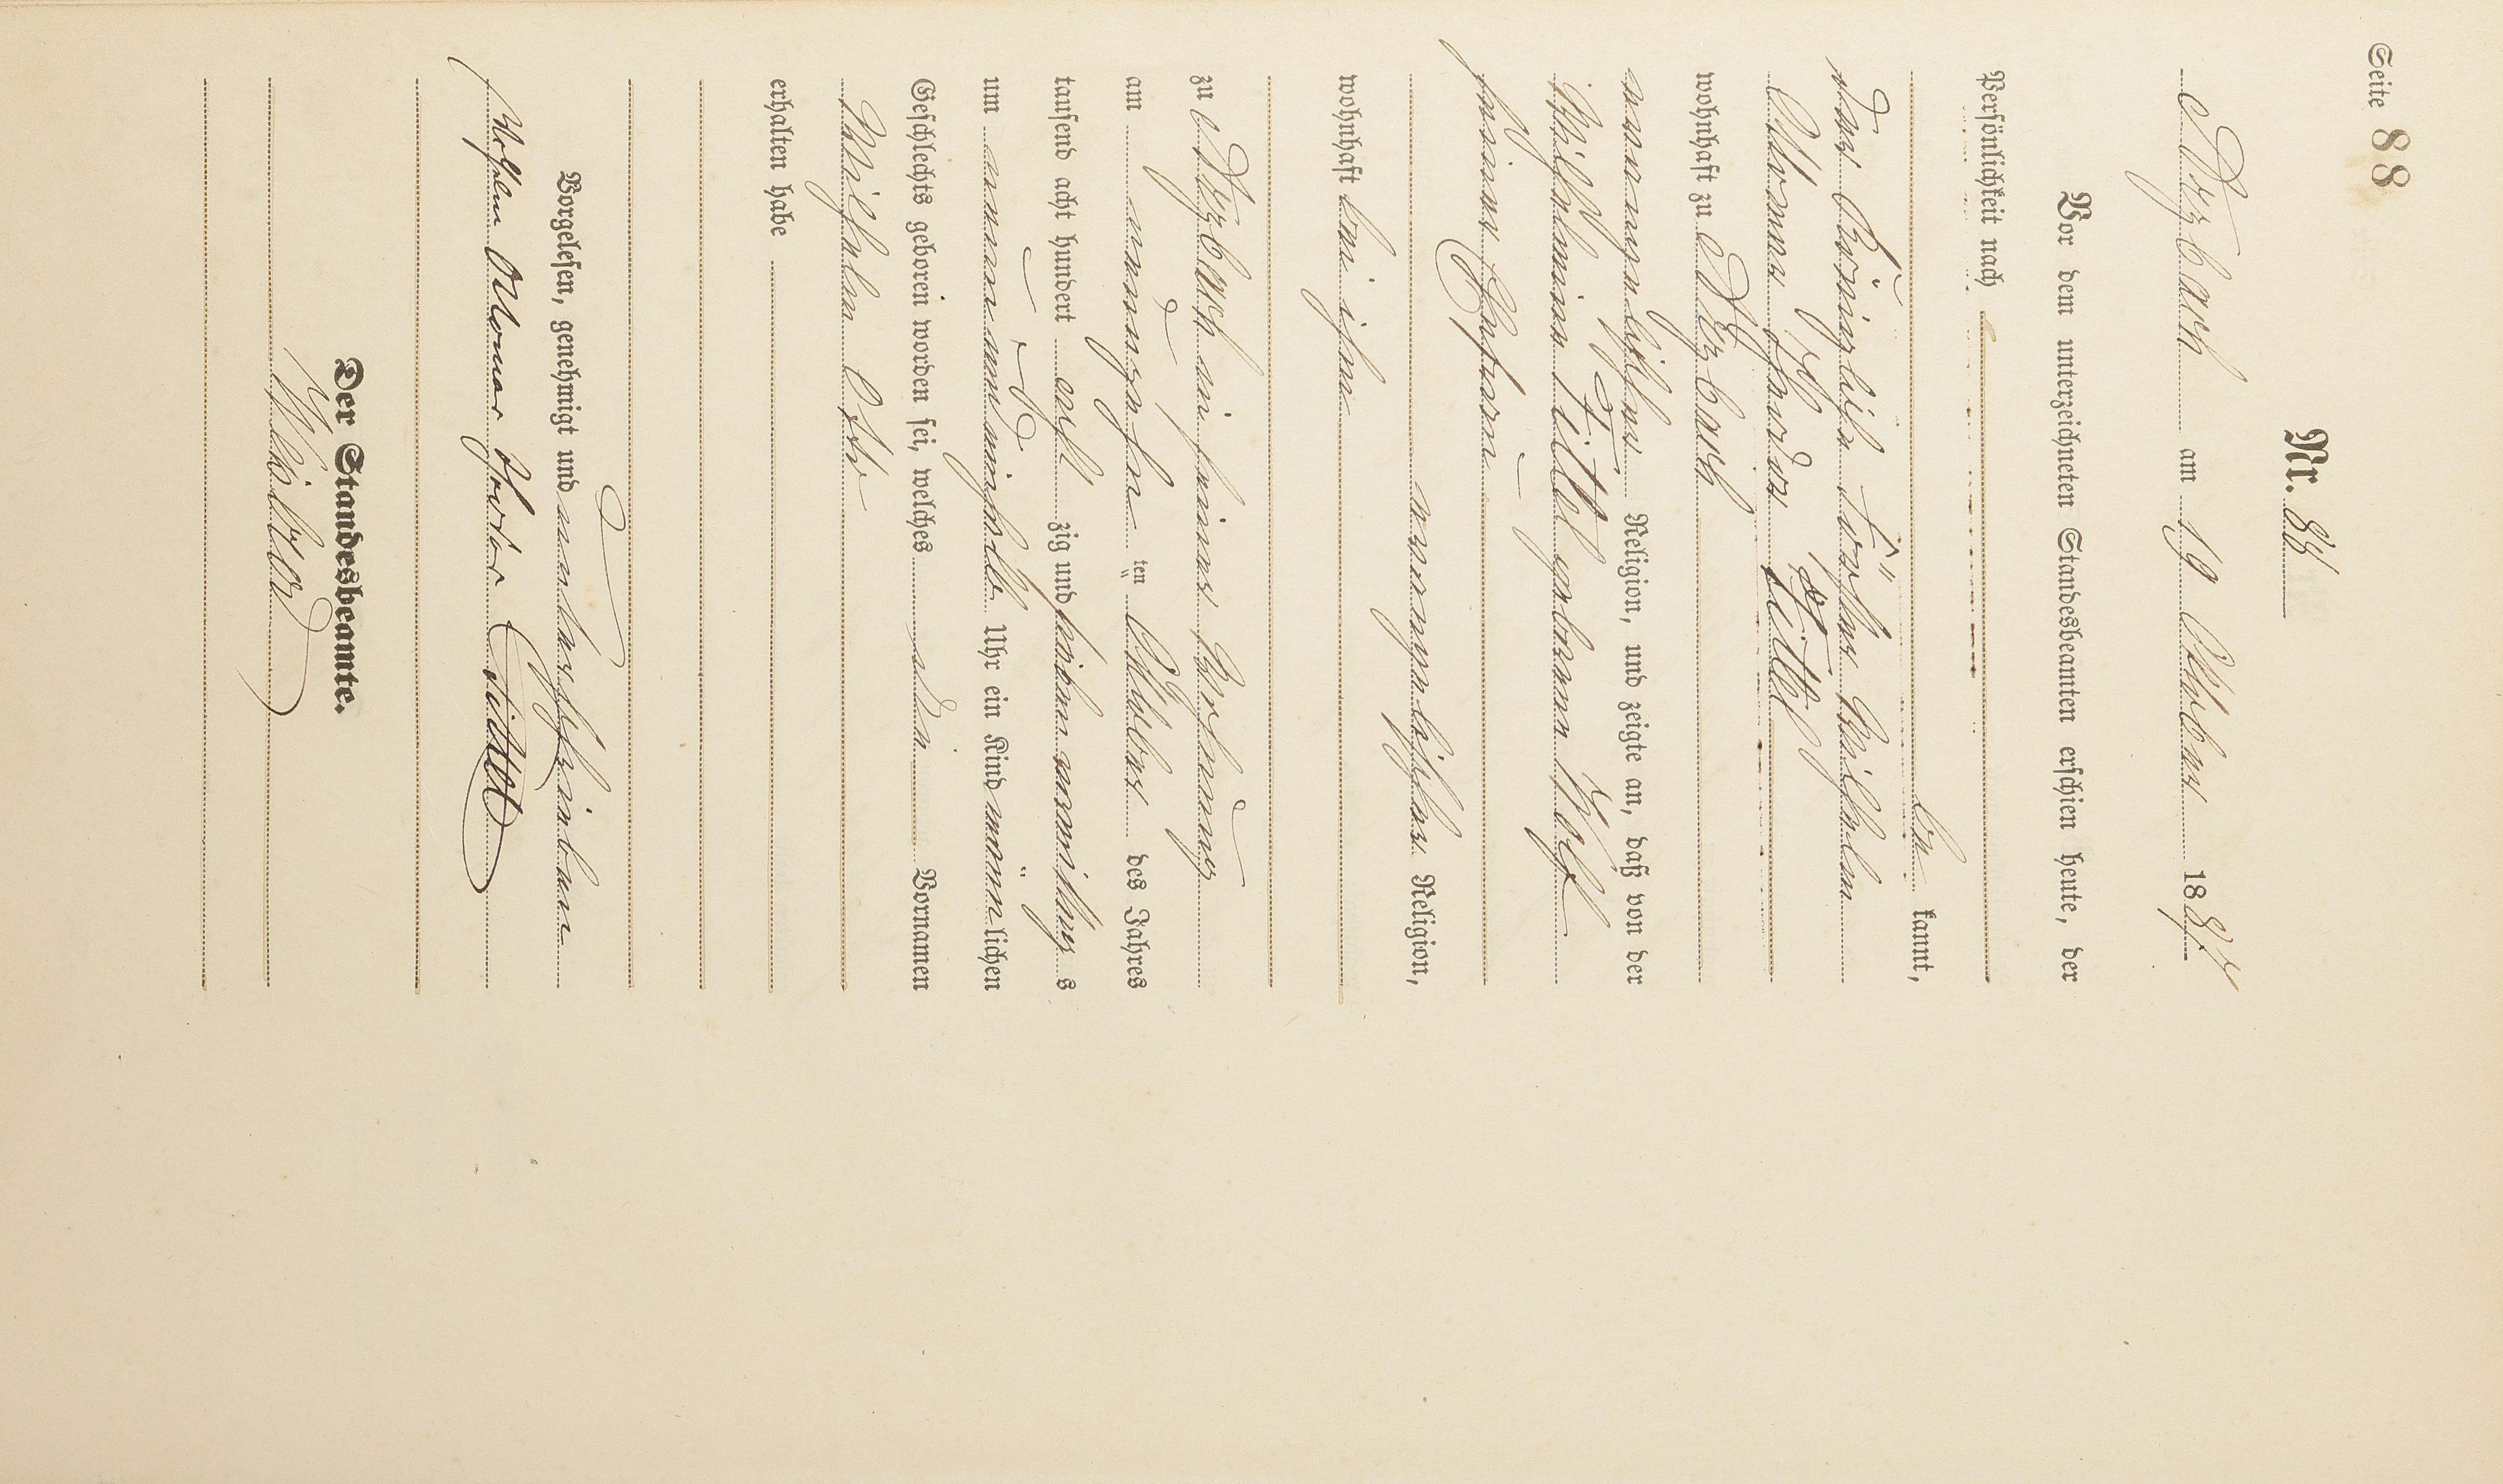 Seite 88
Nr. 88
Atzbach am 19 Oktober 1887
Vor dem unterzeichneten Standesbeamten erschien heute, der
Persönlichkeit nach
be kannt,
der Königliche Förster Wilhelm
Werner Isidor Tittel
wohnhaft zu Atzbach
evangelischer Religion, und zeigte an, daß von der
Wilhelmine Tittel geborene Wolf
seiner Ehefrau
evangelischer Religion,
wohnhaft bei ihm
zu Atzbach in seiner Wohnung
am neunzehnten Oktober des Jahres
tausend acht hundert acht zig und sieben Vormittags
um neun und einhalb Uhr ein Kind männlichen
Geschlechts geboren worden sei, welches die Vornamen
Wilhelm Otto
erhalten habe
Vorgelesen, genehmigt und unterschrieben
Wilhelm Werner Isidor Tittel
Der Standesbeamte.